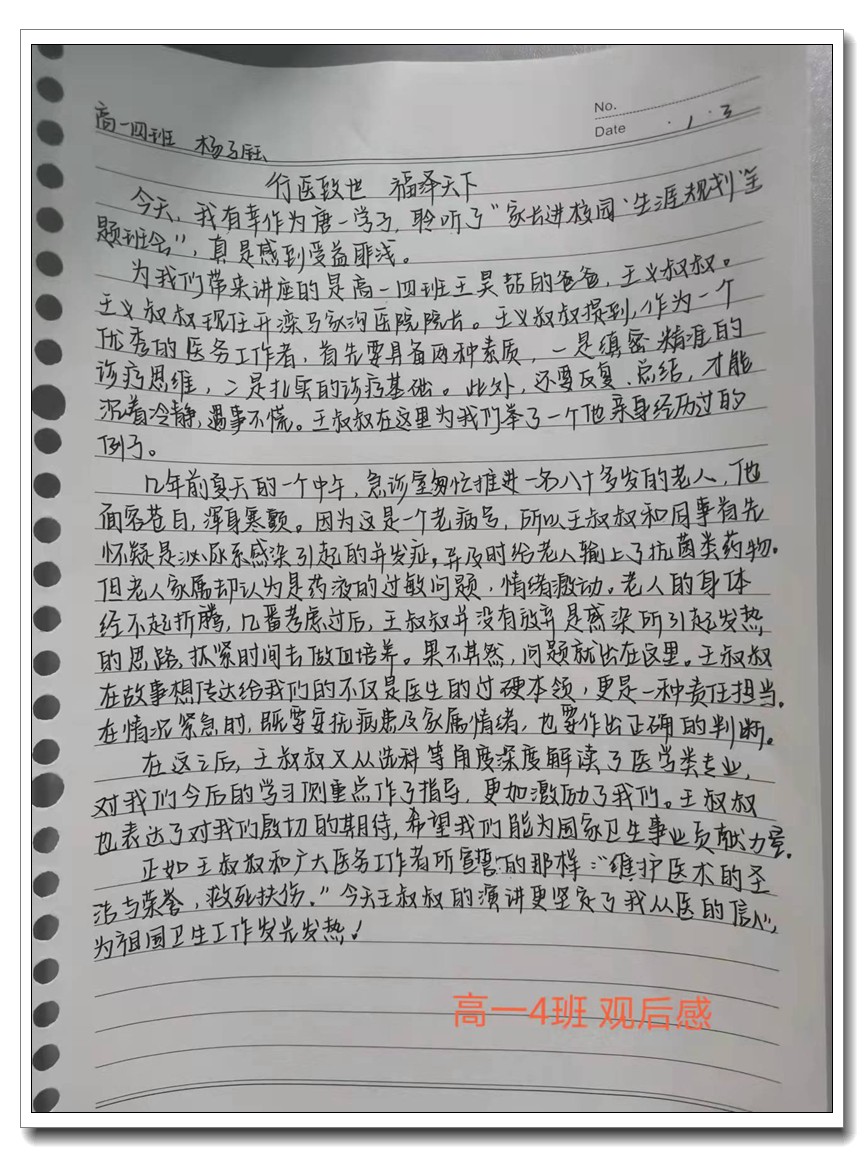 No.
Date · 1 · 3
高一四班 杨子钰
行医致世 福泽天下
今天，我有幸作为唐一学子，聆听了“家长进校园‘生涯规划’主
题班会”，真是感到受益匪浅。
为我们带来讲座的是高一四班王昊喆的爸爸，王义叔叔。
王义叔叔现任开滦马家沟医院院长。王义叔叔提到，作为一个
优秀的医务工作者，首先要具备两种素质，一是缜密精准的
诊疗思维，二是扎实的诊疗基础。此外，还要反复、总结，才能
沉着冷静，遇事不慌。王叔叔在这里为我们举了一个他亲身经历过的
例子。
几年前夏天的一个中午，急诊室匆忙推进一名八十多岁的老人，他
面容苍白，浑身寒颤。因为这是一个老病号，所以王叔叔和同事首先
怀疑是泌尿系感染引起的并发症，并及时给老人输上了抗菌类药物。
但老人家属却认为是药液的过敏问题，情绪激动。老人的身体
经不起折腾，几番考虑过后，王叔叔并没有放弃是感染所引起发热
的思路，抓紧时间去做血培养。果不其然，问题就出在这里。王叔叔
在故事想传达给我们的不仅是医生的过硬本领，更是一种责任担当。
在情况紧急时，既要安抚病患及家属情绪，也要作出正确的判断。
在这之后，王叔叔又从选科等角度深度解读了医学类专业，
对我们今后的学习侧重点作了指导，更加激励了我们。王叔叔
也表达了对我们殷切的期待，希望我们能为国家卫生事业贡献力量。
正如王叔叔和广大医务工作者所宣誓的那样：“维护医术的圣
洁与荣誉，救死扶伤。”今天王叔叔的演讲更坚定了我从医的信心，
为祖国卫生工作发光发热！
高一4班 观后感